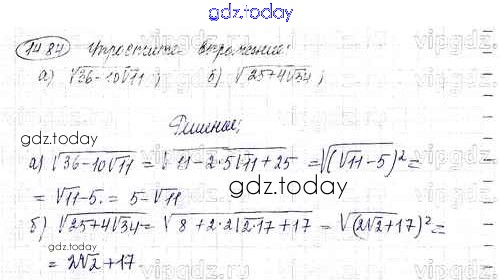 gdz.today
1484 Упростите выражение:
а) √36-10√11; б) √25+4√34;
Решение:
gdz.today
а) √36-10√11 = √11-2·5√11+25 = √(√11-5)² =
gdz.today
= √11-5 = 5-√11
б) √25+4√34 = √8+2·2√2·17+17 = √(2√2+17)² =
gdz.today
= 2√2+17